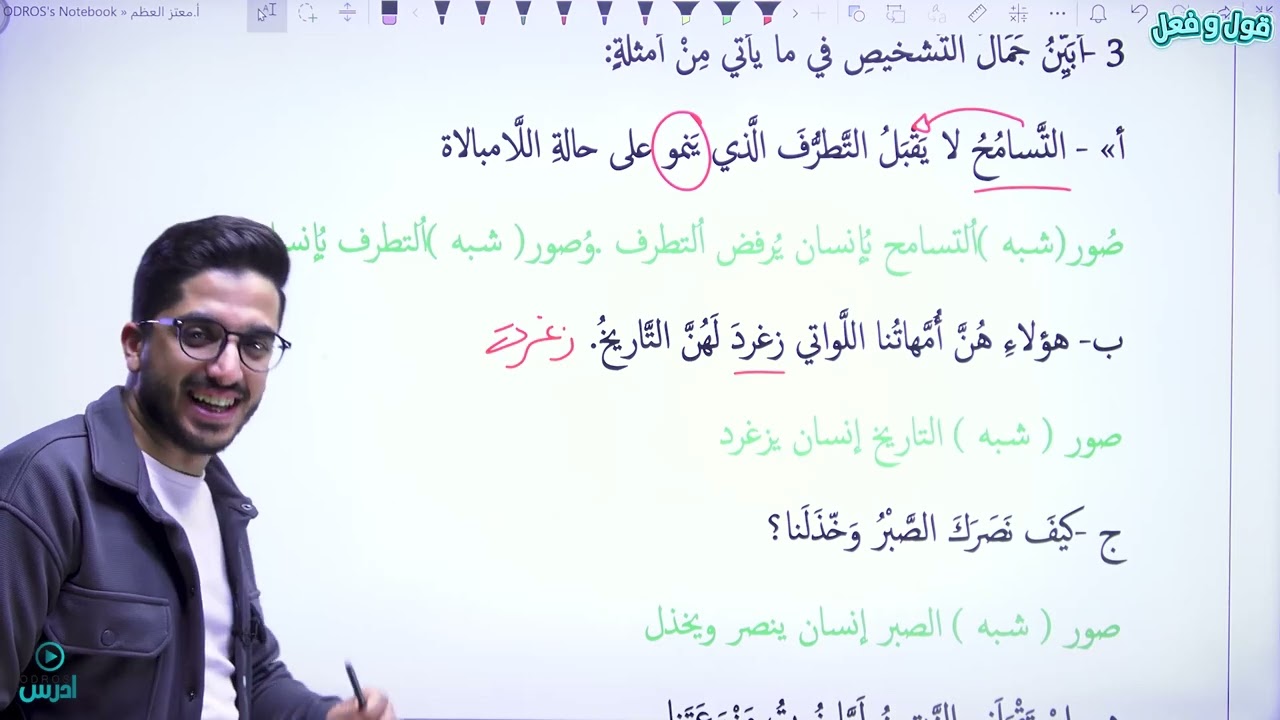 ODROS's Notebook » أ.معتز العظم
قول و فعل
3 -أُبَيِّنُ جَمَالَ التَّشخيصِ في ما يأتي مِنْ أمثلةٍ:
أ» - التَّسامُحُ لا يَقْبَلُ التَّطرُّفَ الَّذي يَنمو على حالةِ اللَّامبالاة
صُور(شبه )اُلتسامح بُإنسان يُرفض اُلتطرف .وُصور( شبه )اُلتطرف
ب- هؤلاءِ هُنَّ أُمَّهاتُنا اللَّواتي زغردَ لَهُنَّ التَّاريخُ. زغردت
صور ( شبه ) التاريخ إنسان يزغرد
ج -كيفَ نَصَرَكَ الصَّبْرُ وَخَّذَلَنا؟
صور ( شبه ) الصبر إنسان ينصر ويخذل
ODROS
ادرس